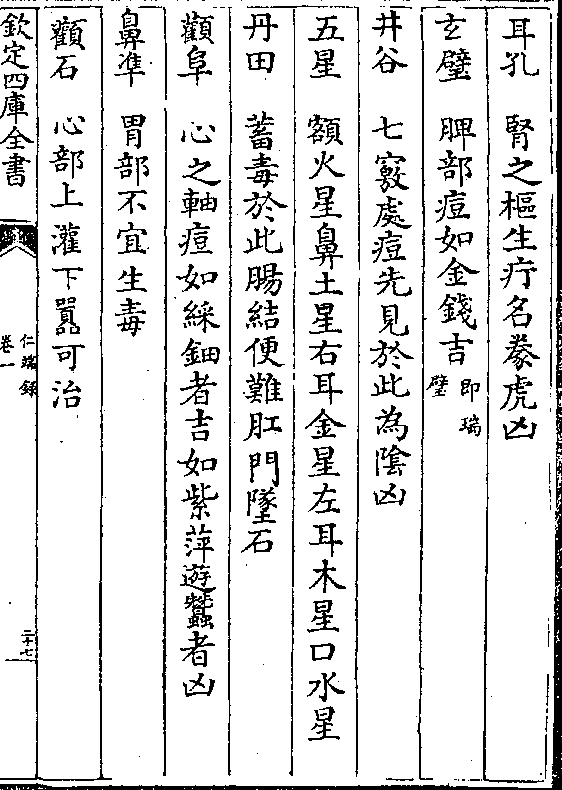 耳孔 腎之樞生疔名豢虎凶
玄璧 脾部痘如金錢吉 即瑞璧
井谷 七竅處痘先見於此為陰凶
五星 額火星鼻土星右耳金星左耳木星口水星
丹田 蓄毒於此腸結便難肛門墜石
顴阜 心之軸痘如綵鈿者吉如紫萍遊蠶者凶
鼻準 胃部不宜生毒
顴石 心部上灌下嚣可治
欽定四庫全書
仁端錄
卷一
二十七